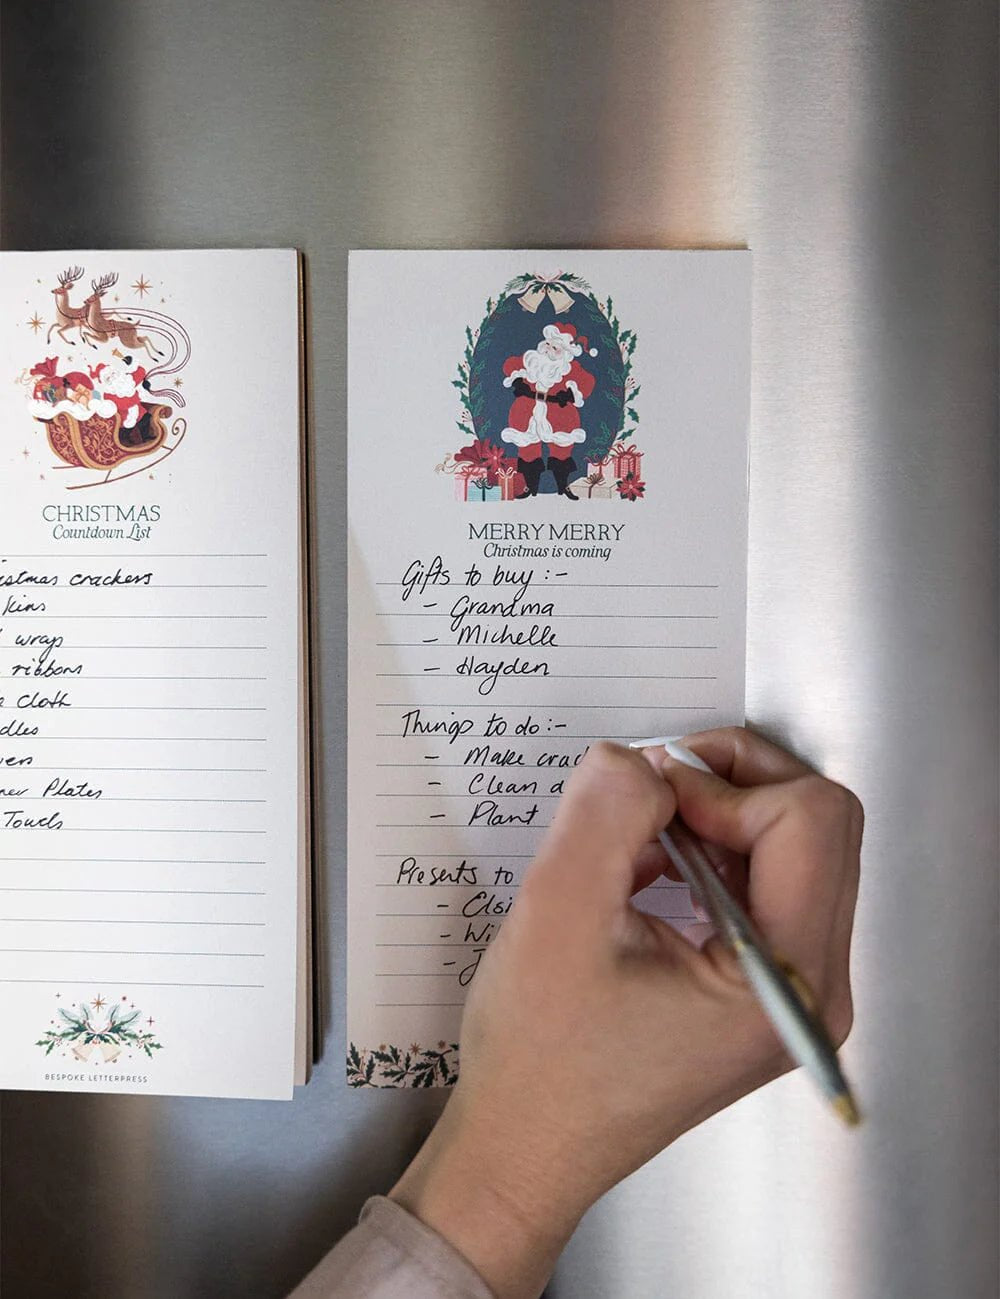 CHRISTMAS
Countdown List
crackers
wraps
ribbons
Cloth
Plates
Towels
BESPOKE LETTERPRESS
MERRY MERRY
Christmas is coming
Gifts to buy :-
- Grandma
- Michelle
- Hayden
Things to do :-
- Make
- Clean
- Plant
Presents to